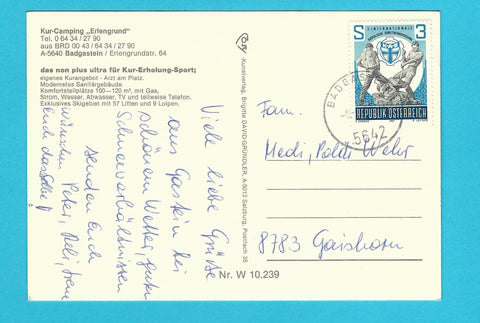 Kur-Camping „Erlengrund"
Tel. 0 64 34 / 27 90
aus BRD 00 43 / 64 34 / 27 90
A-5640 Badgastein / Erlengrundstr. 64
das non plus ultra für Kur-Erholung-Sport;
eigenes Kurangebot - Arzt am Platz.
Modernste Sanitärgebäude.
Komfortstellplätze 100—120 m², mit Gas,
Strom, Wasser, Abwasser, TV und teilweise Telefon.
Exklusives Skigebiet mit 57 Liften und 9 Loipen.
Viele liebe Grüße
aus Gastein bei
schönem Wetter, guten
Schneeverhältnissen
senden Euch
Peter,
wünschen
Kunstverlag, Brigitte DAVID-GRÜNDLER, A-5013 Salzburg, Postfach 35
Nr. W 10.239
S 3
REPUBLIK ÖSTERREICH
5642
Fam.
Medi, Poldi Wehr
8783 Gaishorn